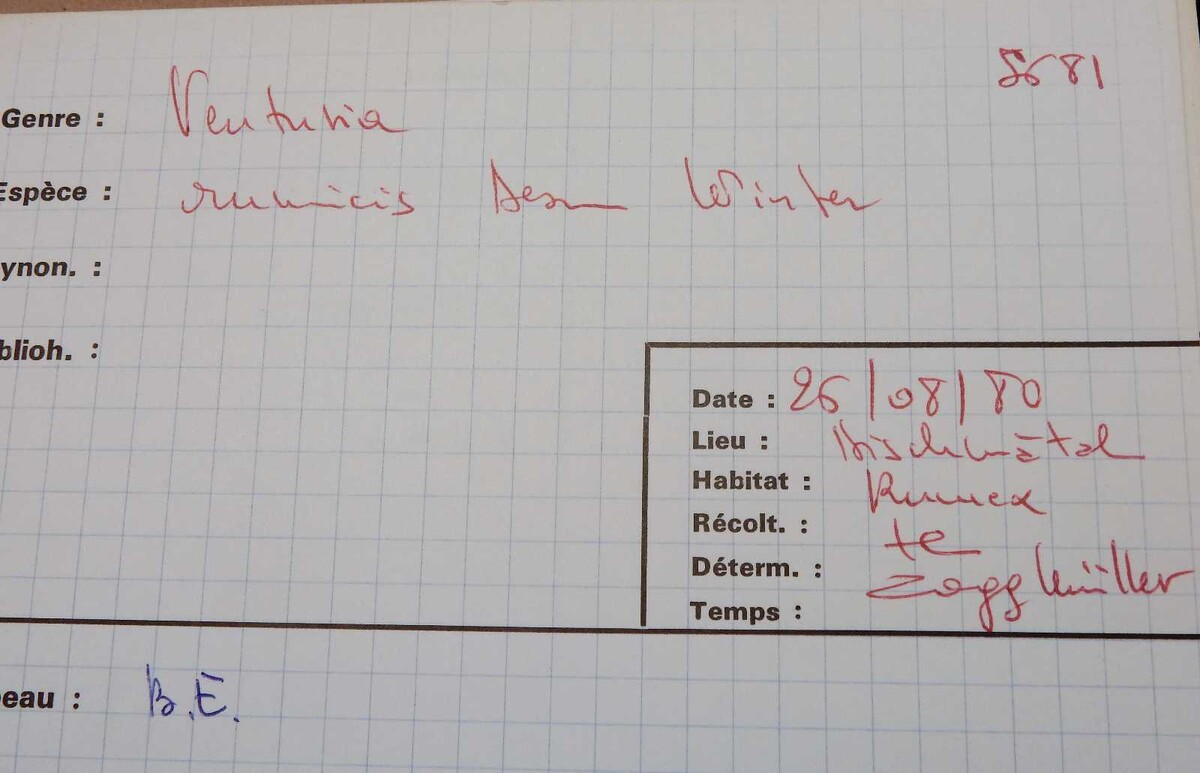 5681
Genre : Venturia
Espèce : rumicis Desm Winter
ynon. :
blioh. :
Date : 26/08/80
Lieu :
Habitat : Rumex
Récolt. : te
Déterm. : Zogg Müller
Temps :
eau : B.E.